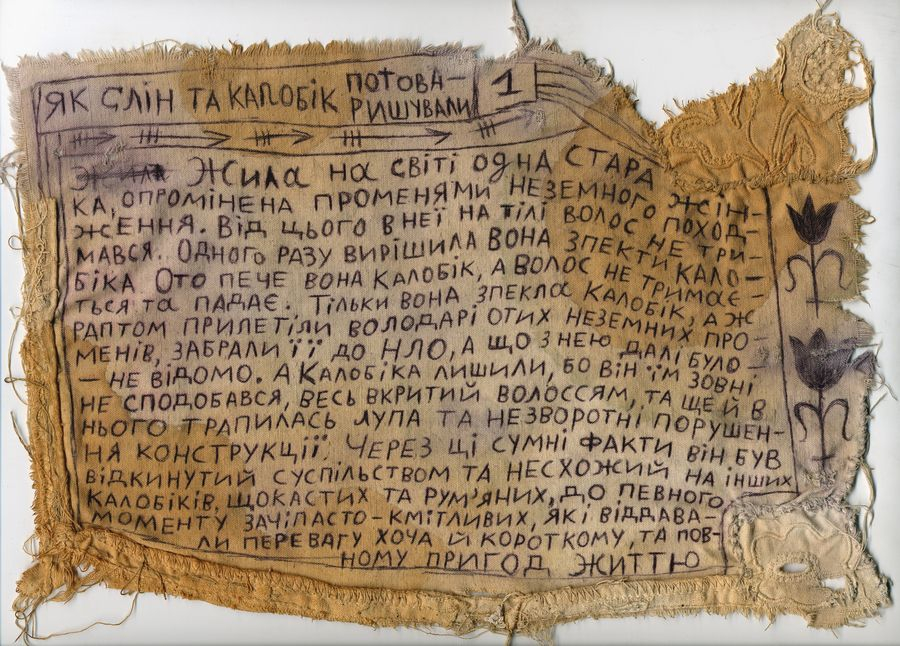 ЯК СЛІН ТА КАЛОБІК ПОТОВА-
РИШУВАЛИ
1
ЖИЛА ЖИЛА НА СВІТІ ОДНА СТАРА
ЖІН-
КА, ОПРОМІНЕНА ПРОМЕНЯМИ НЕЗЕМНОГО ПОХОД-
ЖЕННЯ. ВІД ЦЬОГО В НЕЇ НА ТІЛІ ВОЛОС НЕ ТРИ-
МАВСЯ. ОДНОГО РАЗУ ВИРІШИЛА ВОНА ЗПЕКТИ КАЛО-
БІКА. ОТО ПЕЧЕ ВОНА КАЛОБІК, А ВОЛОС НЕ ТРИМАЄ-
ТЬСЯ ТА ПАДАЄ. ТІЛЬКИ ВОНА ЗПЕКЛА КАЛОБІК, АЖ
РАПТОМ ПРИЛЕТІЛИ ВОЛОДАРІ ОТИХ НЕЗЕМНИХ ПРО-
МЕНІВ, ЗАБРАЛИ ЇЇ ДО НЛО, А ЩО З НЕЮ ДАЛІ БУЛО-
- НЕ ВІДОМО. А КАЛОБІКА ЛИШИЛИ, БО ВІН ЇМ ЗОВНІ
НЕ СПОДОБАВСЯ, ВЕСЬ ВКРИТИЙ ВОЛОССЯМ, ТА ЩЕ Й В
НЬОГО ТРАПИЛАСЬ ЛУПА ТА НЕЗВОРОТНІ ПОРУШЕН-
НЯ КОНСТРУКЦІЇ. ЧЕРЕЗ ЦІ СУМНІ ФАКТИ ВІН БУВ
ВІДКИНУТИЙ СУСПІЛЬСТВОМ ТА НЕСХОЖИЙ НА ІНШИХ
КАЛОБІКІВ, ЩОКАСТИХ ТА РУМ'ЯНИХ, ДО ПЕВНОГО
МОМЕНТУ ЗАЧІПАСТО-КМІТЛИВИХ, ЯКІ ВІДДАВА-
ЛИ ПЕРЕВАГУ ХОЧА Й КОРОТКОМУ, ТА ПОВ-
НОМУ ПРИГОД ЖИТТЮ